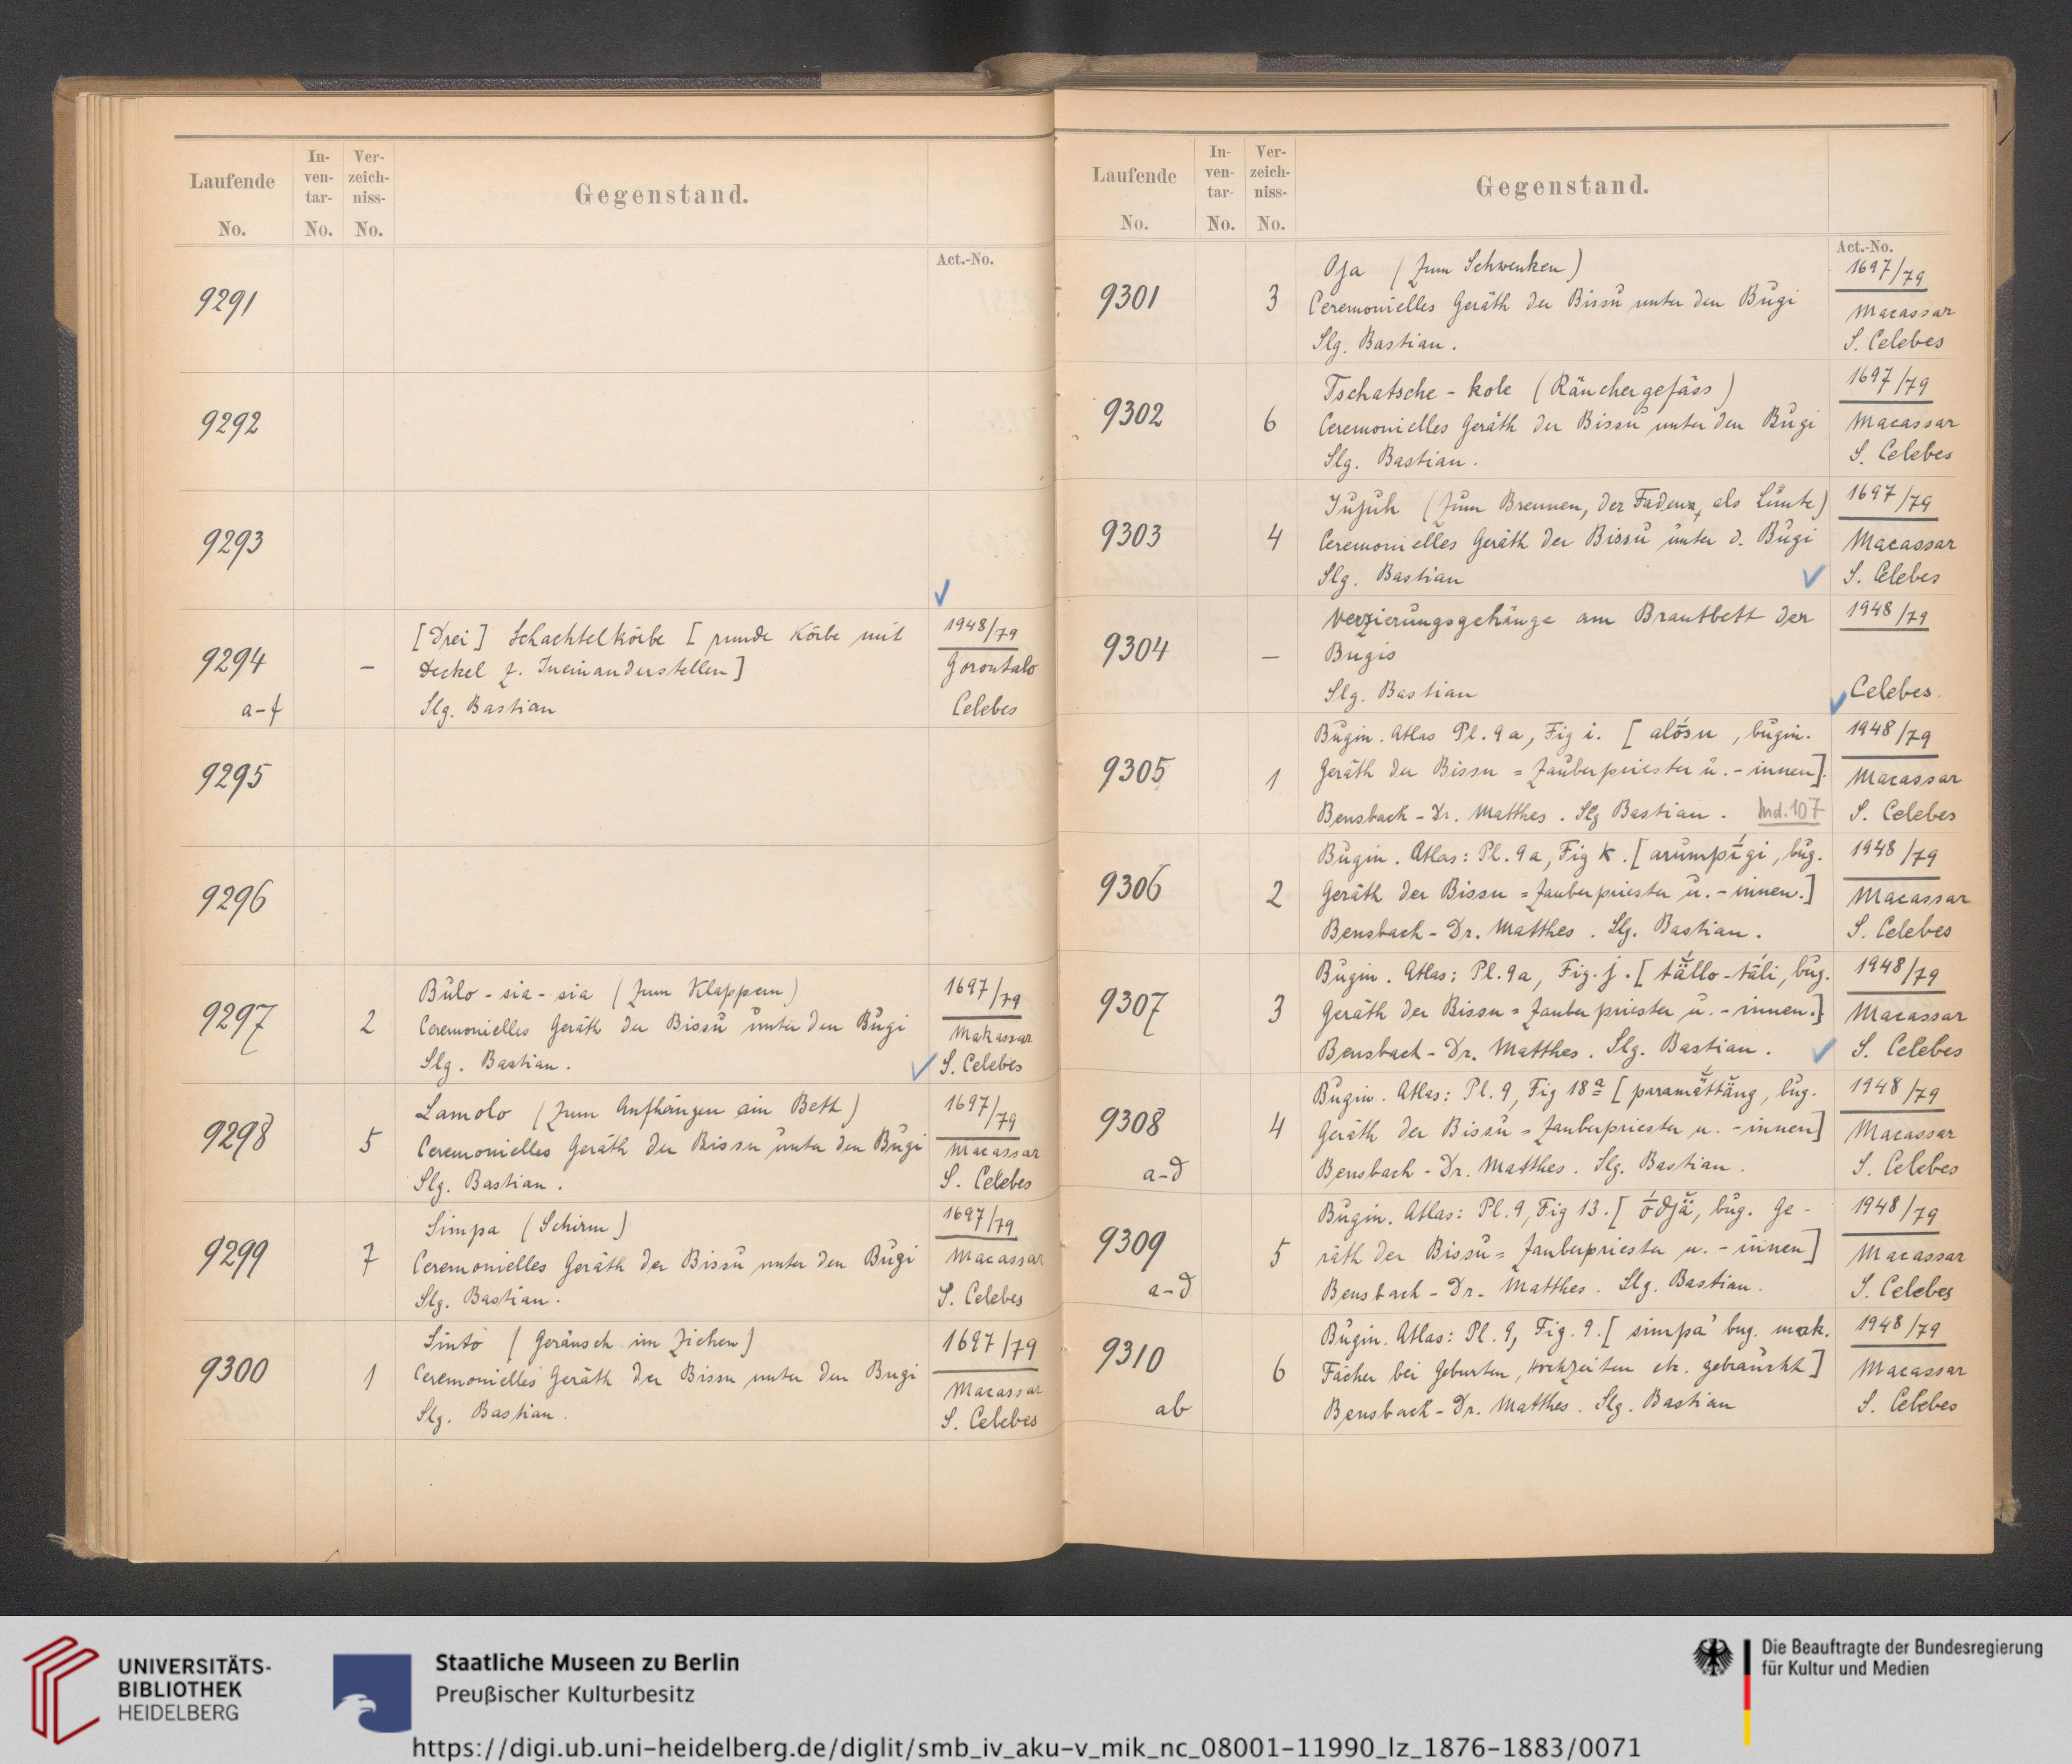 Laufende No.
In-ven-tar- No.
Ver-zeich-niss- No.
Gegenstand.
Act.-No.
9291
9292
9293
9294 a-f
–
[Drei] Schachtelkörbe [runde Körbe mit
Deckel z. Ineinanderstellen]
Slg. Bastian
1948/79
Gorontalo
Celebes
9295
9296
9297
2
Bulo-sia-sia (zum Klappern)
Ceremonielles Geräth der Bissu unter den Bugi
Slg. Bastian.
1697/79
Makassar
S. Celebes
9298
5
Lamolo (zum Aufhängen am Bett)
Ceremonielles Geräth der Bissu unter den Bugi
Slg. Bastian.
1697/79
Macassar
S. Celebes
9299
7
Simpa (Schirm)
Ceremonielles Geräth der Bissu unter den Bugi
Slg. Bastian.
1697/79
Macassar
S. Celebes
9300
1
Sinto (Geräusch im Ziehen)
Ceremonielles Geräth der Bissu unter den Bugi
Slg. Bastian.
1697/79
Macassar
S. Celebes
Laufende No.
In-ven-tar- No.
Ver-zeich-niss- No.
Gegenstand.
Act.-No.
9301
3
Oja (zum Schwenken)
Ceremonielles Geräth der Bissu unter den Bugi
Slg. Bastian.
1697/79
Macassar
S. Celebes
9302
6
Tschatsche-kole (Räuchergefäss)
Ceremonielles Geräth der Bissu unter den Bugi
Slg. Bastian.
1697/79
Macassar
S. Celebes
9303
4
(zum Brennen, der Faden, als Lunte)
Ceremonielles Geräth der Bissu unter d. Bugi
Slg. Bastian
1697/79
Macassar
S. Celebes
9304
–
Verzierungsgehänge am Brautbett der
Bugis
Slg. Bastian
1948/79
Celebes
9305
1
Bugin. Atlas Pl. 9a, Fig i. [alósu, bugin.
Geräth der Bissu = Zauberpriester u. -innen].
Bensbach - Dr. Matthes. Slg Bastian. Ind. 107
1948/79
Macassar
S. Celebes
9306
2
Bugin. Atlas: Pl. 9a, Fig k. [arumpígi, bug.
Geräth der Bissu = Zauberpriester u. -innen.]
Bensbach - Dr. Matthes. Slg. Bastian.
1948/79
Macassar
S. Celebes
9307
3
Bugin. Atlas: Pl. 9a, Fig. j. [tällo-táli, bug.
Geräth der Bissu = Zauberpriester u. -innen.]
Bensbach - Dr. Matthes. Slg. Bastian.
1948/79
Macassar
S. Celebes
9308 a-d
4
Bugin. Atlas: Pl. 9, Fig 18a [paramättäng, bug.
Geräth der Bissu = Zauberpriester u. -innen]
Bensbach - Dr. Matthes. Slg. Bastian.
1948/79
Macassar
S. Celebes
9309 a-d
5
Bugin. Atlas: Pl. 9, Fig 13. [ódjä, bug. Ge-
räth der Bissu = Zauberpriester u. -innen]
Bensbach - Dr. Matthes. Slg. Bastian.
1948/79
Macassar
S. Celebes
9310 ab
6
Bugin. Atlas: Pl. 9, Fig. 9. [simpa' bug. mak.
Fächer bei Geburten, Hochzeiten etc. gebraucht]
Bensbach - Dr. Matthes. Slg. Bastian
1948/79
Macassar
S. Celebes
UNIVERSITÄTS-
BIBLIOTHEK
HEIDELBERG
Staatliche Museen zu Berlin
Preußischer Kulturbesitz
Die Beauftragte der Bundesregierung
für Kultur und Medien
https://digi.ub.uni-heidelberg.de/diglit/smb_iv_aku-v_mik_nc_08001-11990_lz_1876-1883/0071